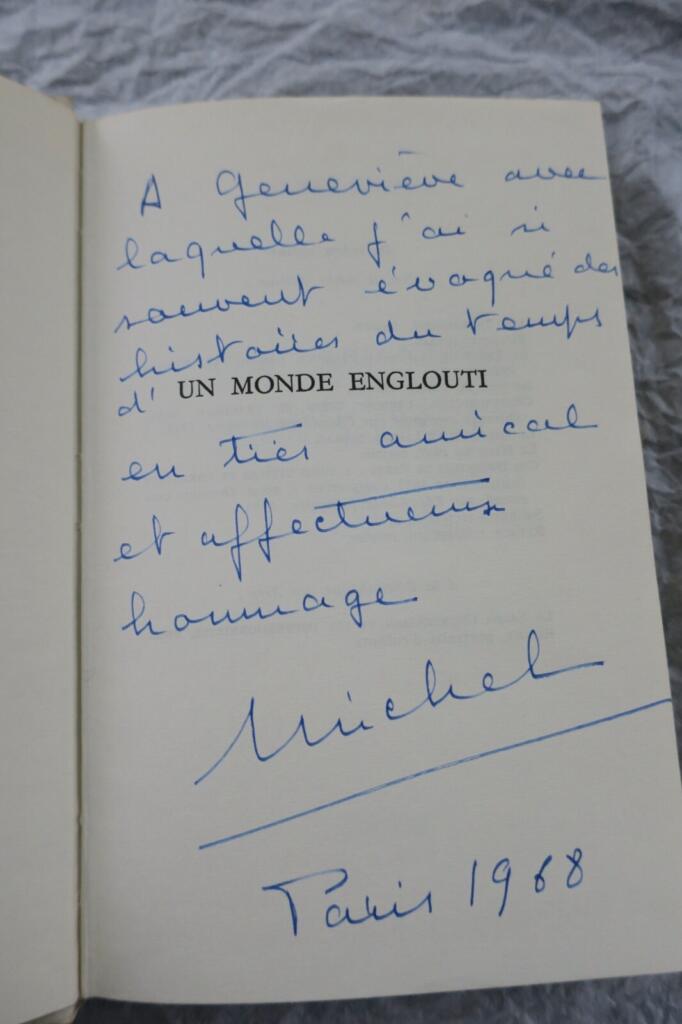 A Geneviève avec
laquelle j'ai si
souvent évoqué des
histoires du temps
d' UN MONDE ENGLOUTI
en très amical
et affectueux
hommage
Michel
Paris 1968